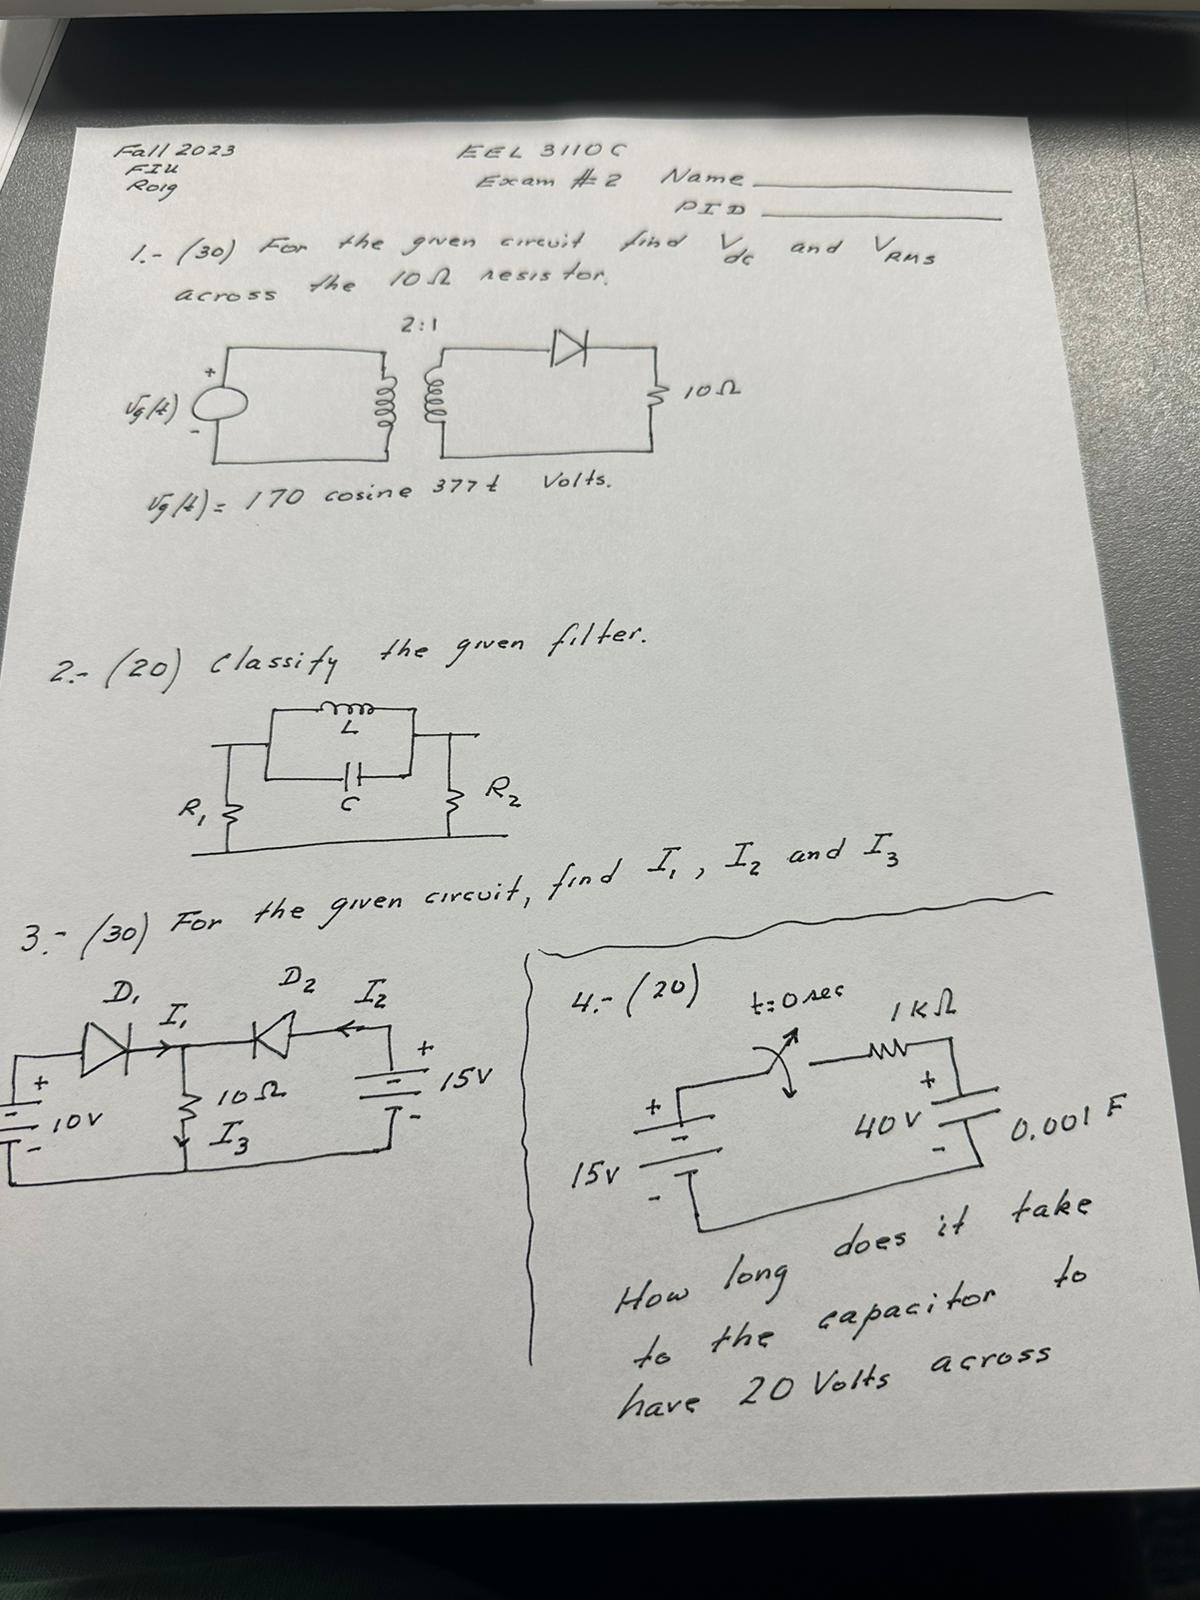 Fall 2023
FIU
Roig
EEL 3110C
Exam #2
Name
PID
1.- (30) For the given circuit find Vdc and VRMS
across the 10Ω resistor.
2:1
+
vg(t)
-
10Ω
vg(t) = 170 cosine 377t Volts.
2.- (20) Classify the given filter.
L
C
R1
R2
3.- (30) For the given circuit, find I1, I2 and I3
D1
I1
D2
I2
+
10V
-
10Ω
I3
+
15V
-
4.- (20)
t=0 sec
1KΩ
+
15V
-
+
40V
-
0.001 F
How long does it take
to the capacitor to
have 20 Volts across